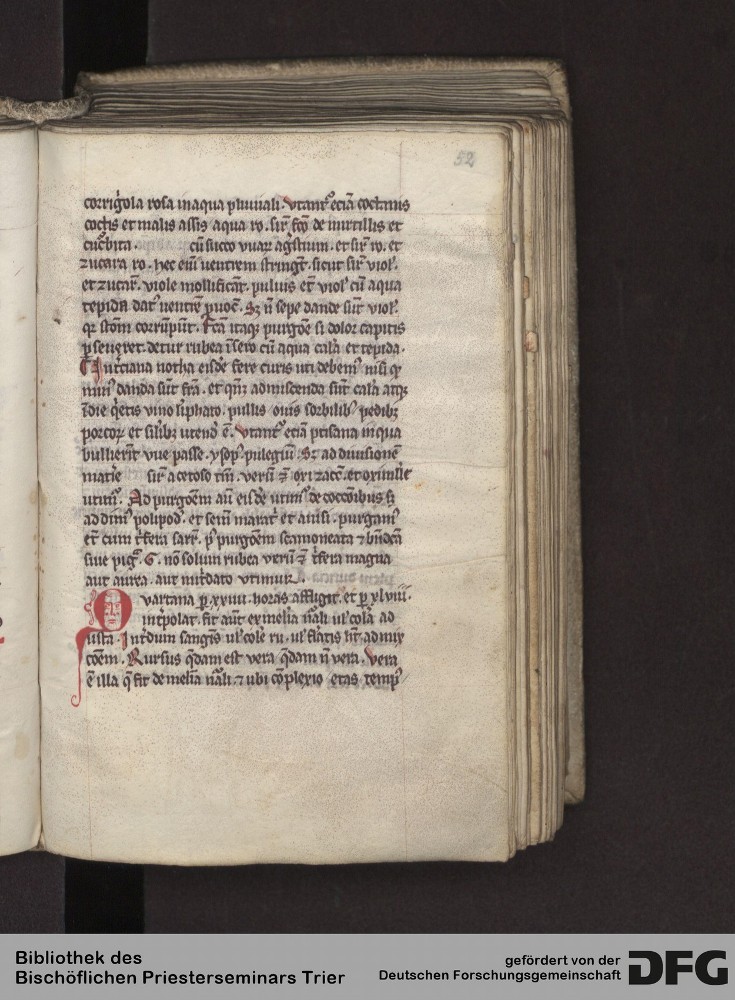 52
corrigola rosa in aqua pluuiali. Vtant᷑ eciā coctanis
coctis et malis assis aqua ro. sir᷑ fc̄o de mirtillis et
cucᷣbita. cū succo vuar᷑ agͣstium. et sir᷑ ro. et
zucara ro. hec eni᷑ uentrem stringt᷑. sicut sir᷑ viol᷑.
et zucar᷑. viole mollificāt. puluis et᷑ viol᷑ cū aqua
tepida dat᷑ uentrē ꝓuoc᷑. Sꝫ n̄ sepe dande sūt viol᷑.
qꝛ stom̄ corrūpūt. Fcā itaqꝫ purgoē̄ si dolor capitis
ꝑseueret. detur rubea ī sero cū aqua cala et tepida.
Intͥciana notha eisdē fere curis uti debem᷒ nisi qꝫ
min᷒ danda sūt frā. et qm̄ admiscenda sūt cala atqꝫ
ī die qͥetis vino līphato. pullis ouis sorbilibꝫ pedibꝫ
porcoꝝ et silibꝫ utend᷑ ē. Vtant᷑ eciā ptisana in qua
bullierīt vue passe. ysop᷑. pulegiū. Sꝫ ad diuisionē
mat̄ie sir᷑ acetoso tm̄. verū ⁊ oxi zacc̄. et oximlle
utim᷑. Ad purgoē̄m aū eisdē utim᷑ de coccōibus sꝫ
addim᷒ polipod᷑. et sem̄ marat᷑ et anisi. purgam᷒
et᷑ cum tͥfera sarr᷑. p᷒ purgoē̄m scamoneata ⁊ bn̄dcā
siue pigͣ. G. nō solum rubea verū ⁊ tͥfera magna
aut aurea. aut mit͛dato vtimur.
Quartana ꝑ xxiiii. horas affligit. et ꝑ xlviii.
int͛polat. fit aūt ex melīa nāli ul᷑ colā ad
usta. Int͛dum sangīs ul᷑ colē ru. ul᷑ flātis hꝫ ad mix
cōem. Rursus qͣdam est vera qͣdam n̄ vera. Vera
ē illa q̄ fit de melīa nāli. ⁊ ubi cōplexio etas temp᷒
Bibliothek des
Bischöflichen Priesterseminars Trier
gefördert von der
Deutschen Forschungsgemeinschaft
DFG